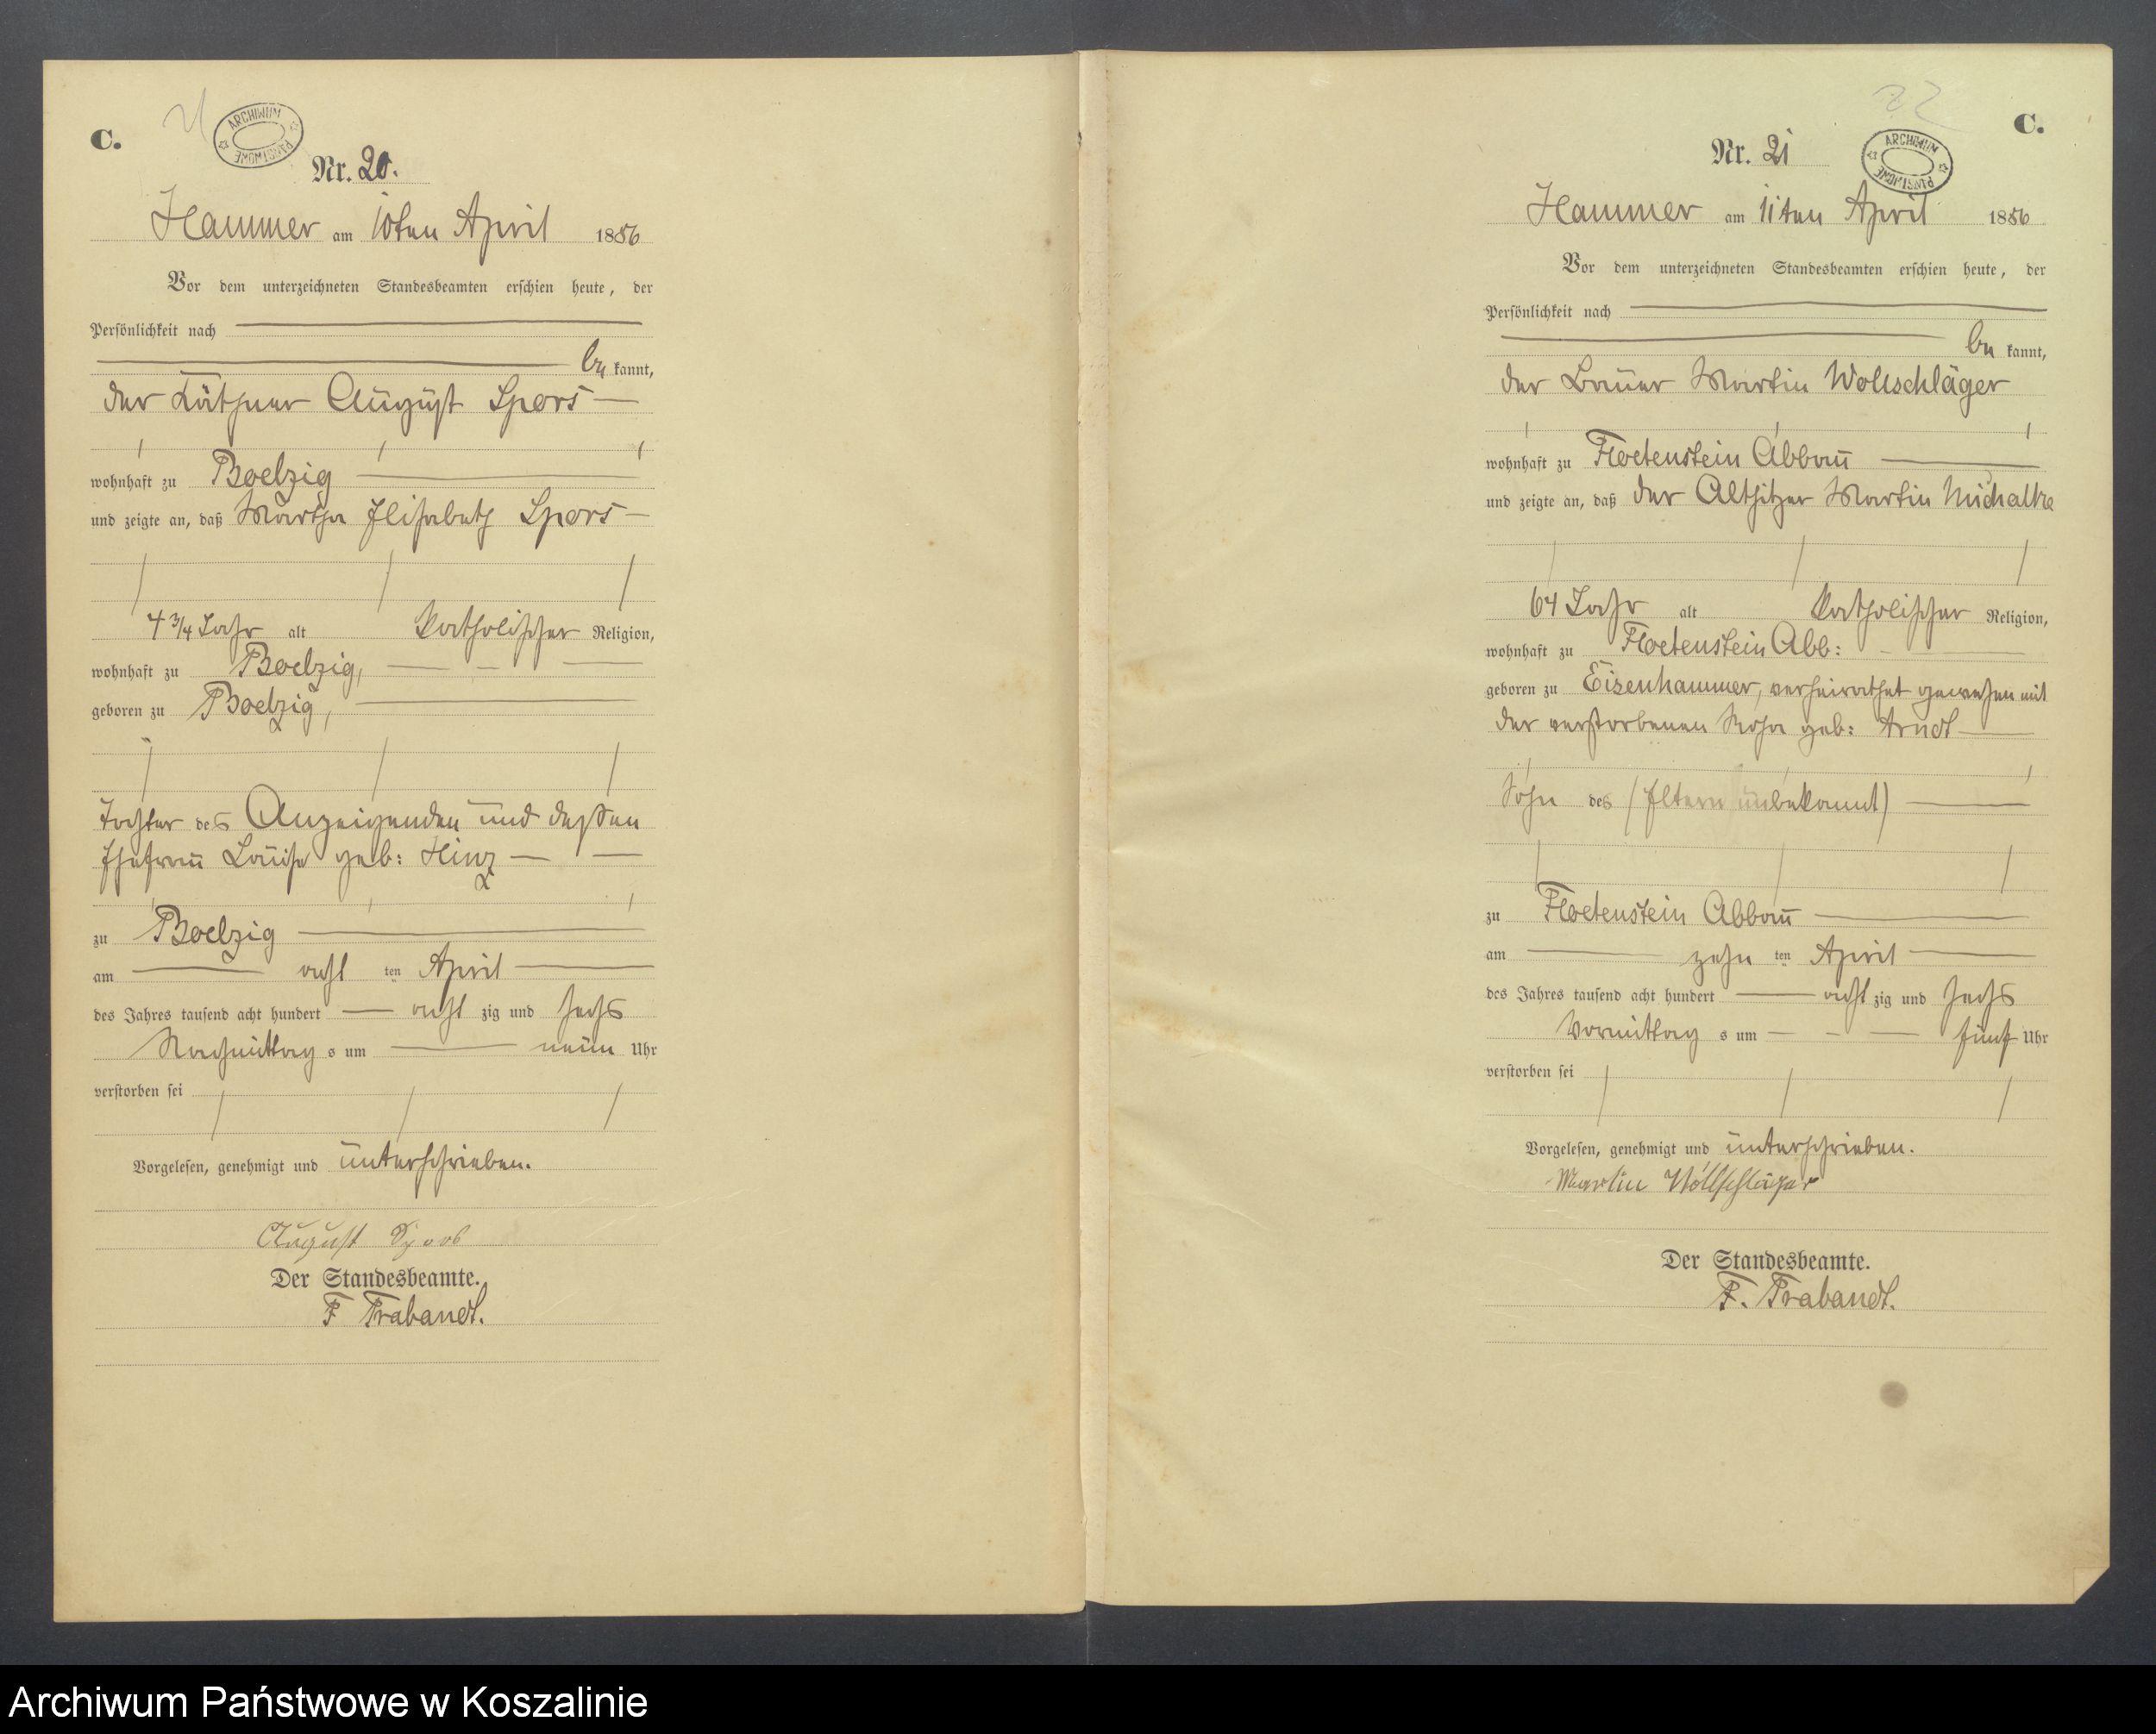 C.
21
ARCHIWUM PAŃSTWOWE
Nr. 20.
Hammer am 10ten April 1886
Vor dem unterzeichneten Standesbeamten erschien heute, der
Persönlichkeit nach
be kannt,
der Käthner August Spors
wohnhaft zu Boelzig
und zeigte an, daß Martha Elisabeth Spors
4 3/4 Jahr alt katholischer Religion,
wohnhaft zu Boelzig,
geboren zu Boelzig,
Tochter des Anzeigenden und dessen
Ehefrau Louise geb: Hinz
zu Boelzig
am acht ten April
des Jahres tausend acht hundert acht zig und sechs
Nachmittag s um neun Uhr
verstorben sei
Vorgelesen, genehmigt und unterschrieben.
August Spors
Der Standesbeamte.
F Trabandt.
22
C.
Nr. 21
ARCHIWUM PAŃSTWOWE
Hammer am 11ten April 1886
Vor dem unterzeichneten Standesbeamten erschien heute, der
Persönlichkeit nach
be kannt,
der Bauer Martin Wollschläger
wohnhaft zu Floetenstein Abbau
und zeigte an, daß der Altsitzer Martin Michalke
64 Jahr alt katholischer Religion,
wohnhaft zu Floetenstein Abb:
geboren zu Eisenhammer, verheirathet gewesen mit
der verstorbenen Rosa geb: Arndt
Sohn des (Eltern unbekannt)
zu Floetenstein Abbau
am zehn ten April
des Jahres tausend acht hundert acht zig und sechs
Vormittag s um fünf Uhr
verstorben sei
Vorgelesen, genehmigt und unterschrieben.
Martin Wollschläger
Der Standesbeamte.
F. Trabandt.
Archiwum Państwowe w Koszalinie